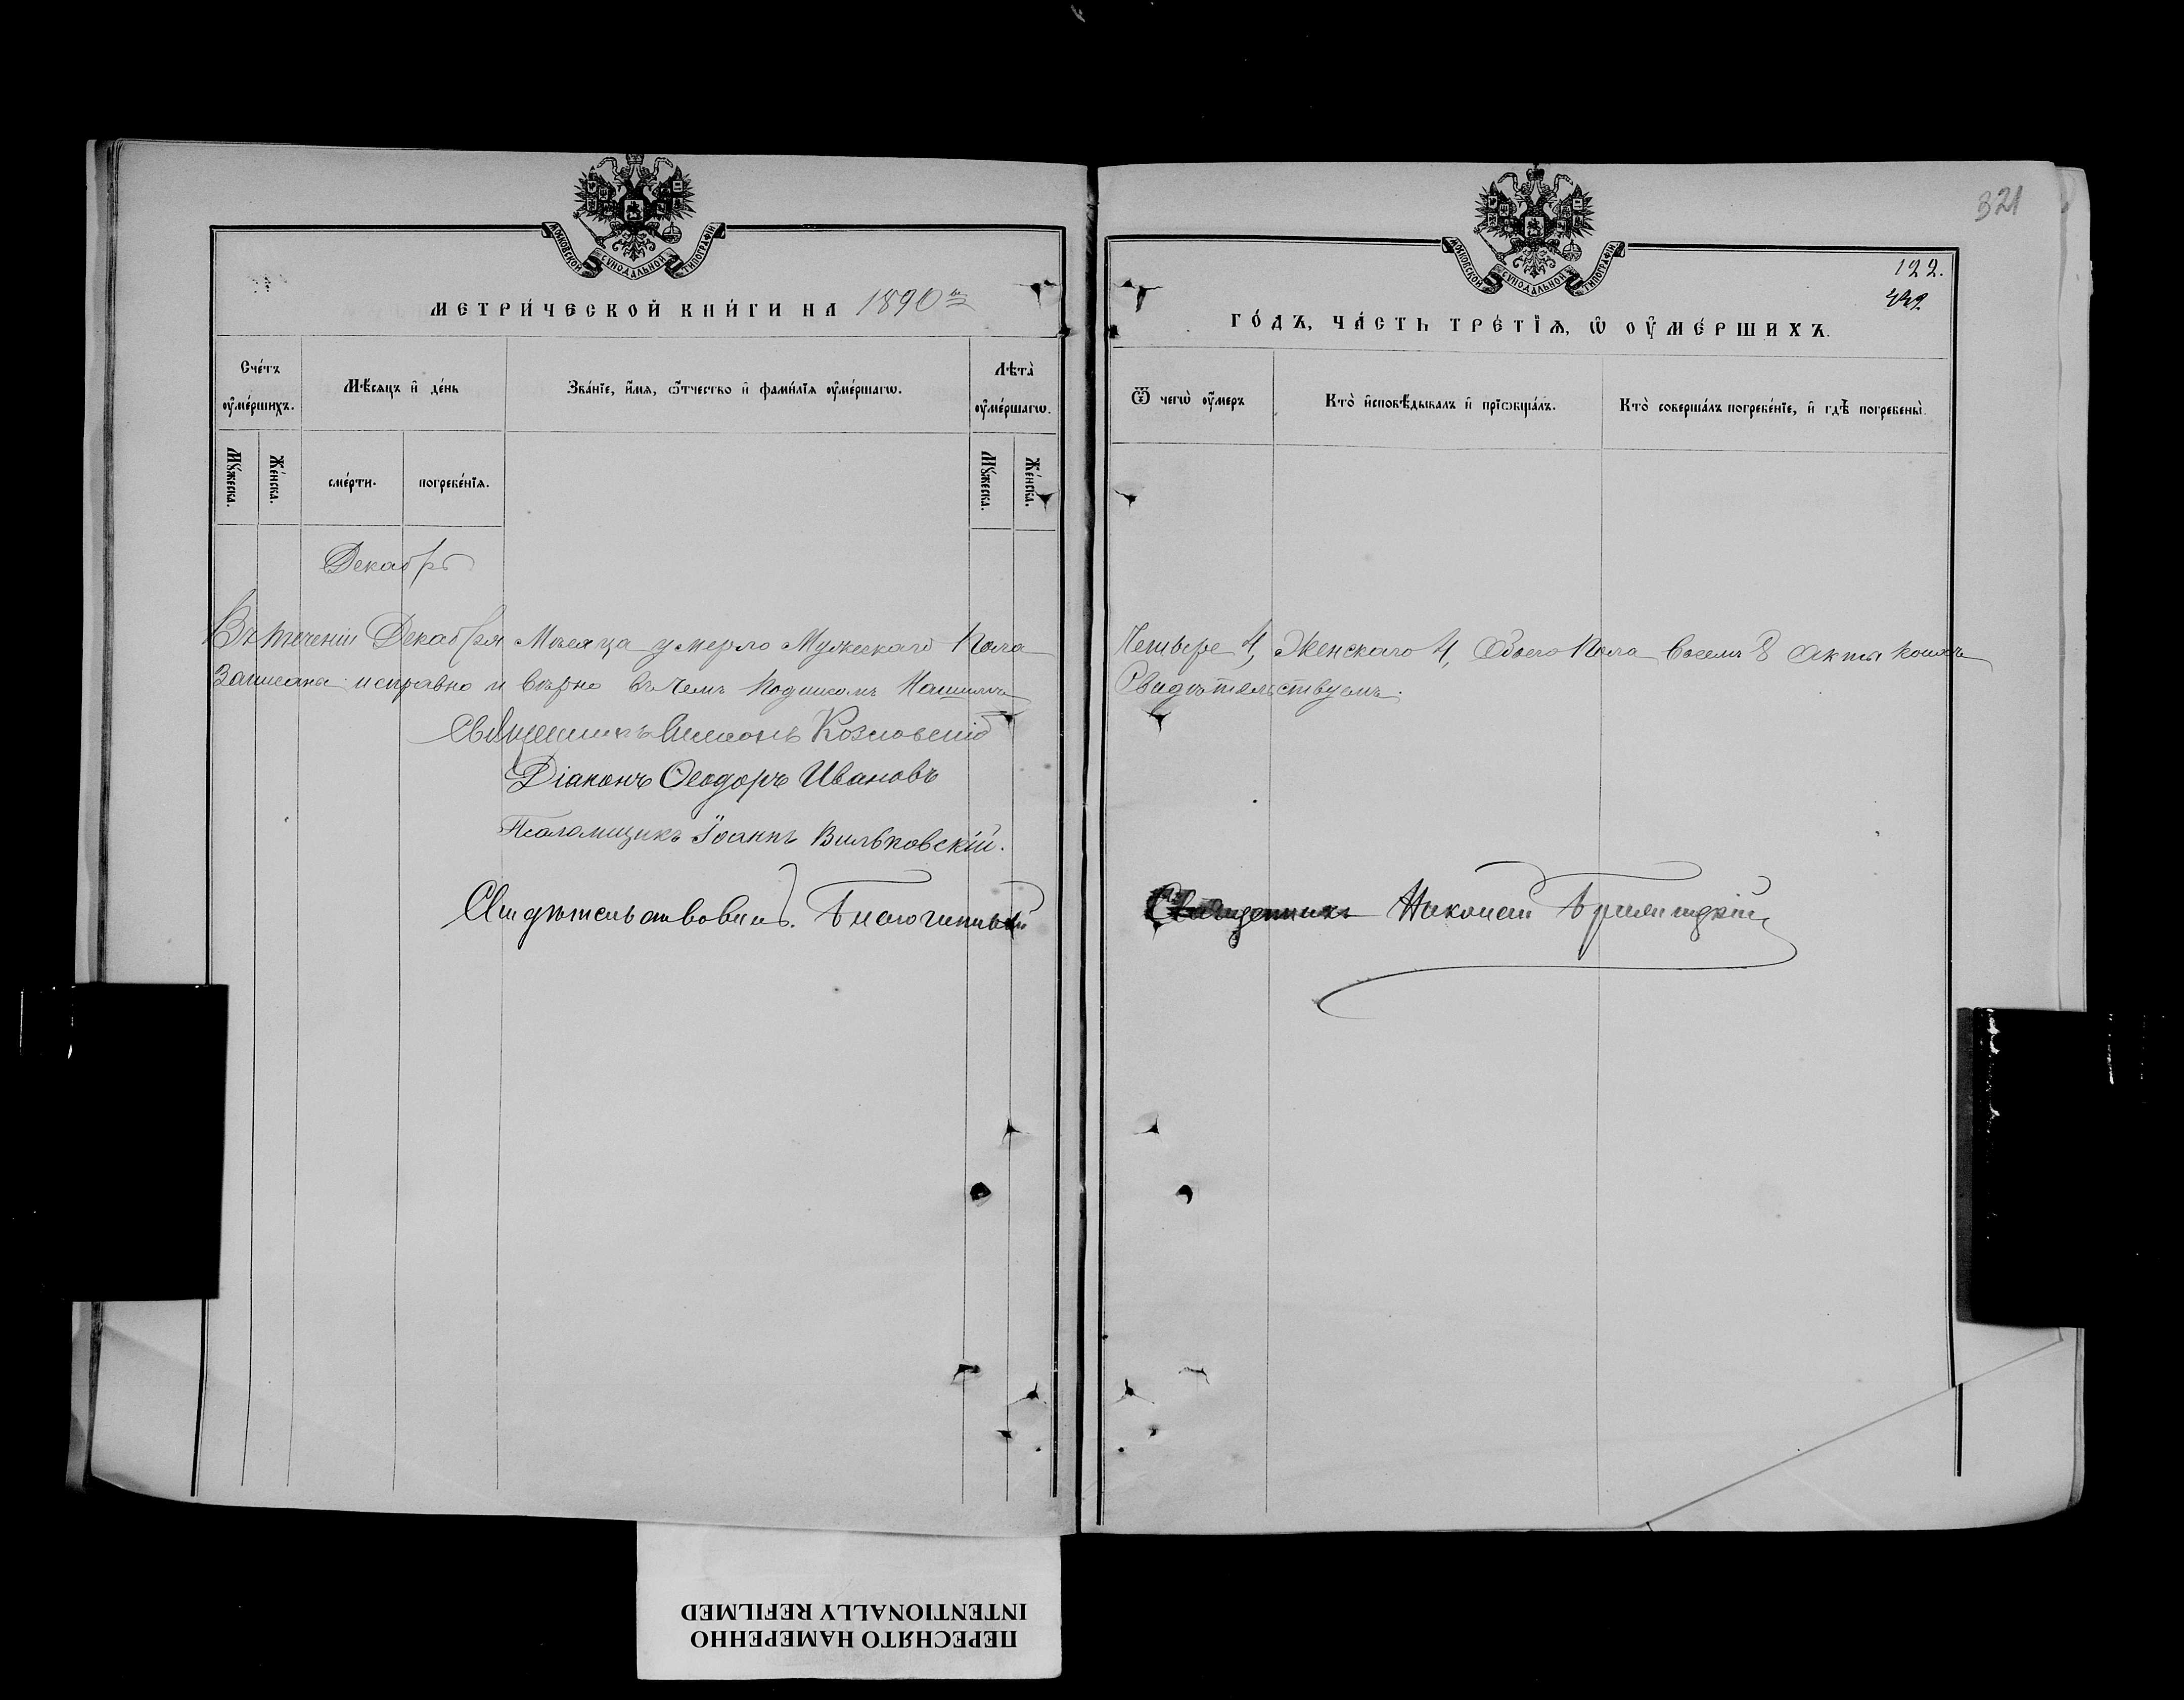 МОСКОВСКОЙ СУНОДАЛЬНОЙ ТИПОГРАФІИ
МЕТРИ́ЧЕСКОЙ КНИ́ГИ НА 1890й
Сче́тъ ᲂу҆ме́ршихъ.
Мѣ́сяцъ и҆ де́нь
Зва́нїе, и҆́мя, ѻ҆́тчество и҆ фами́лїя ᲂу҆ме́ршагѡ.
Лѣ́та ᲂу҆ме́ршагѡ.
Мꙋ́жеска.
Же́нска.
сме́рти.
погребе́нїя.
Мꙋ́жеска.
Же́нска.
Декабрь
Въ теченіи Декабря Мѣсяца умерло Мужескаго Пола
Записана исправно и вѣрно въ чемъ Подписомъ Нашимъ
Священникъ Симеонъ Козловскій
Діаконъ Ѳеодоръ Ивановъ
Псаломщикъ Іоаннъ Вильковскій.
Свидѣтельствовалъ. Благочинный
321
МОСКОВСКОЙ СУНОДАЛЬНОЙ ТИПОГРАФІИ
122.
ГО́ДЪ, ЧА́СТЬ ТРЕ́ТЇѦ, Ѡ҆ ОУ҆МЕ́РШИХЪ.
Ѿ чегѡ̀ ᲂу҆́меръ
Кто̀ и҆сповѣ́дывалъ и҆ прїѡбща́лъ.
Кто̀ соверша́лъ погребе́нїе, и҆ гдѣ̀ погребены̀.
Четыре 4, Женскаго 4, Обоего Пола восемъ 8 Акта коихъ
Свидѣтельствуемъ.
Священникъ Николай
ПЕРЕСНЯТО НАМЕРЕННО
INTENTIONALLY REFILMED